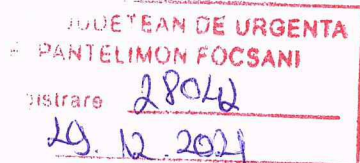 JUDEȚEAN DE URGENTA
PANTELIMON FOCSANI
istrare 28042
29. 12. 2021